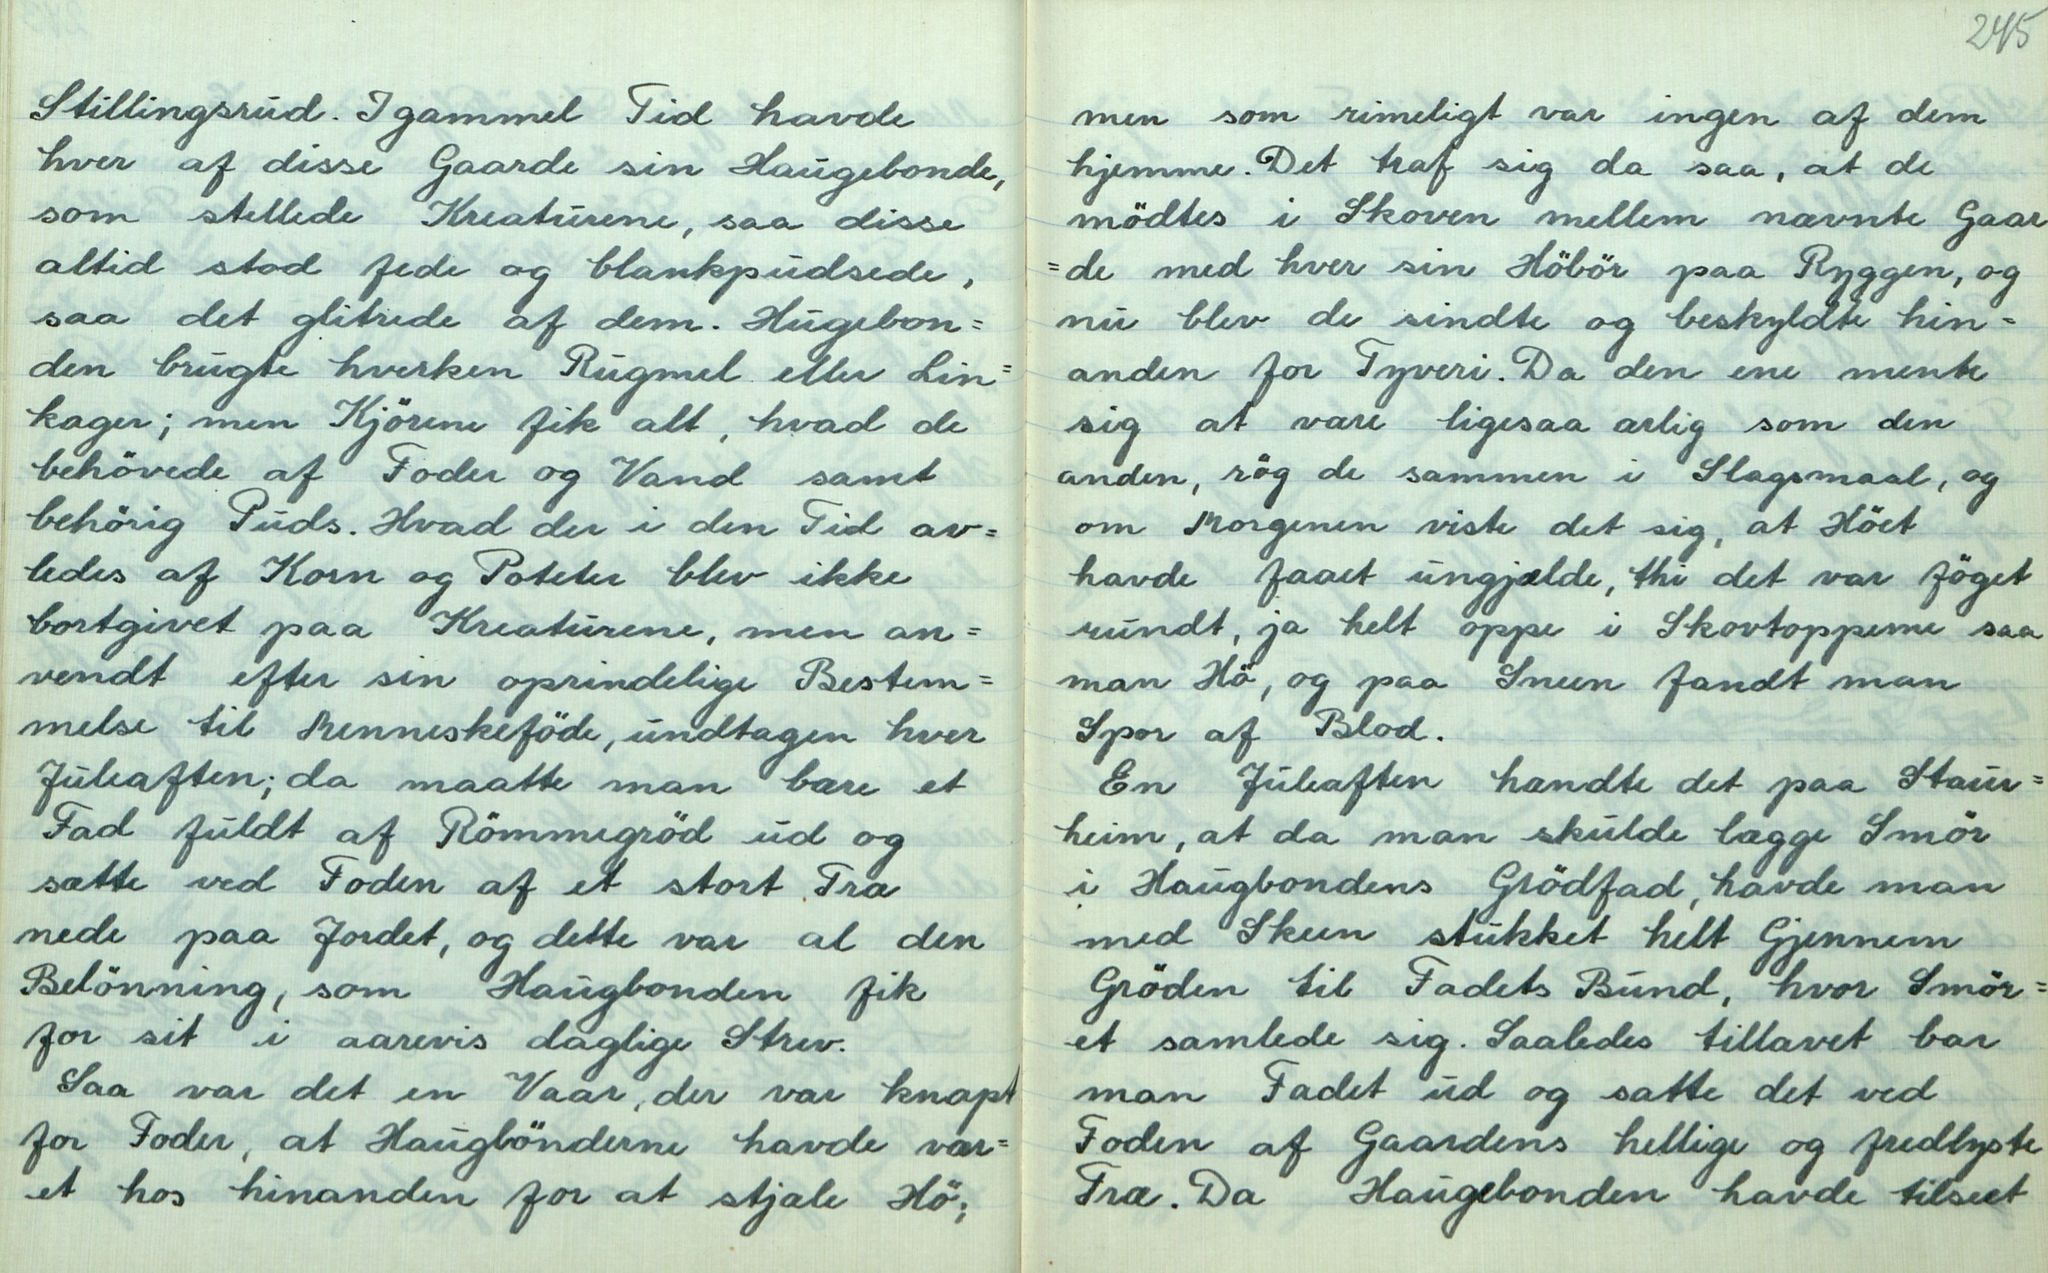 Stillingsrud. I gammel Tid havde
hver af disse Gaarde sin Haugebonde,
som stellede Kreaturene, saa disse
altid stod fede og blankpudsede,
saa det glitrede af dem. Hugebon=
den brugte hverken Rugmel eller Lin=
kager; men Kjörene fik alt, hvad de
behövede af Foder og Vand samt
behörig Puds. Hvad der i den Tid av=
ledes af Korn og Poteter blev ikke
bortgivet paa Kreaturene, men an=
vendt efter sin oprindelige Bestem=
melse til Menneskeföde, undtagen hver
Juleaften; da maatte man bære et
Fad fuldt af Römmegröd ud og
sætte ved Foden af et stort Træ
nede paa Jordet, og dette var al den
Belönning, som Haugbonden fik
for sit i aarevis daglige Strev.
Saa var det en Vaar, der var knapt
for Foder, at Haugbönderne havde vær=
et hos hinanden for at stjæle Hö;
245
men som rimeligt var ingen af dem
hjemme. Det traf sig da saa, at de
mödtes i Skoven mellem nævnte Gaar
=de med hver sin Höbör paa Ryggen, og
nu blev de sindte og beskyldte hin=
anden for Tyveri. Da den ene mente
sig at være ligesaa ærlig som den
anden, rög de sammen i Slagsmaal, og
om Morgenen viste det sig, at Höet
havde faaet ungjælde, thi det var föget
rundt, ja helt oppe i Skovtopperne saa
man Hö, og paa Sneen fandt man
Spor af Blod.
En Juleaften hændte det paa Staur=
heim, at da man skulde lægge Smör
i Haugbondens Grödfad, havde man
med Skeen stukket helt Gjennem
Gröden til Fadets Bund, hvor Smör=
et samlede sig. Saaledes tillavet bar
man Fadet ud og satte det ved
Foden af Gaardens hellige og fredlyste
Træ. Da Haugebonden havde tilseet